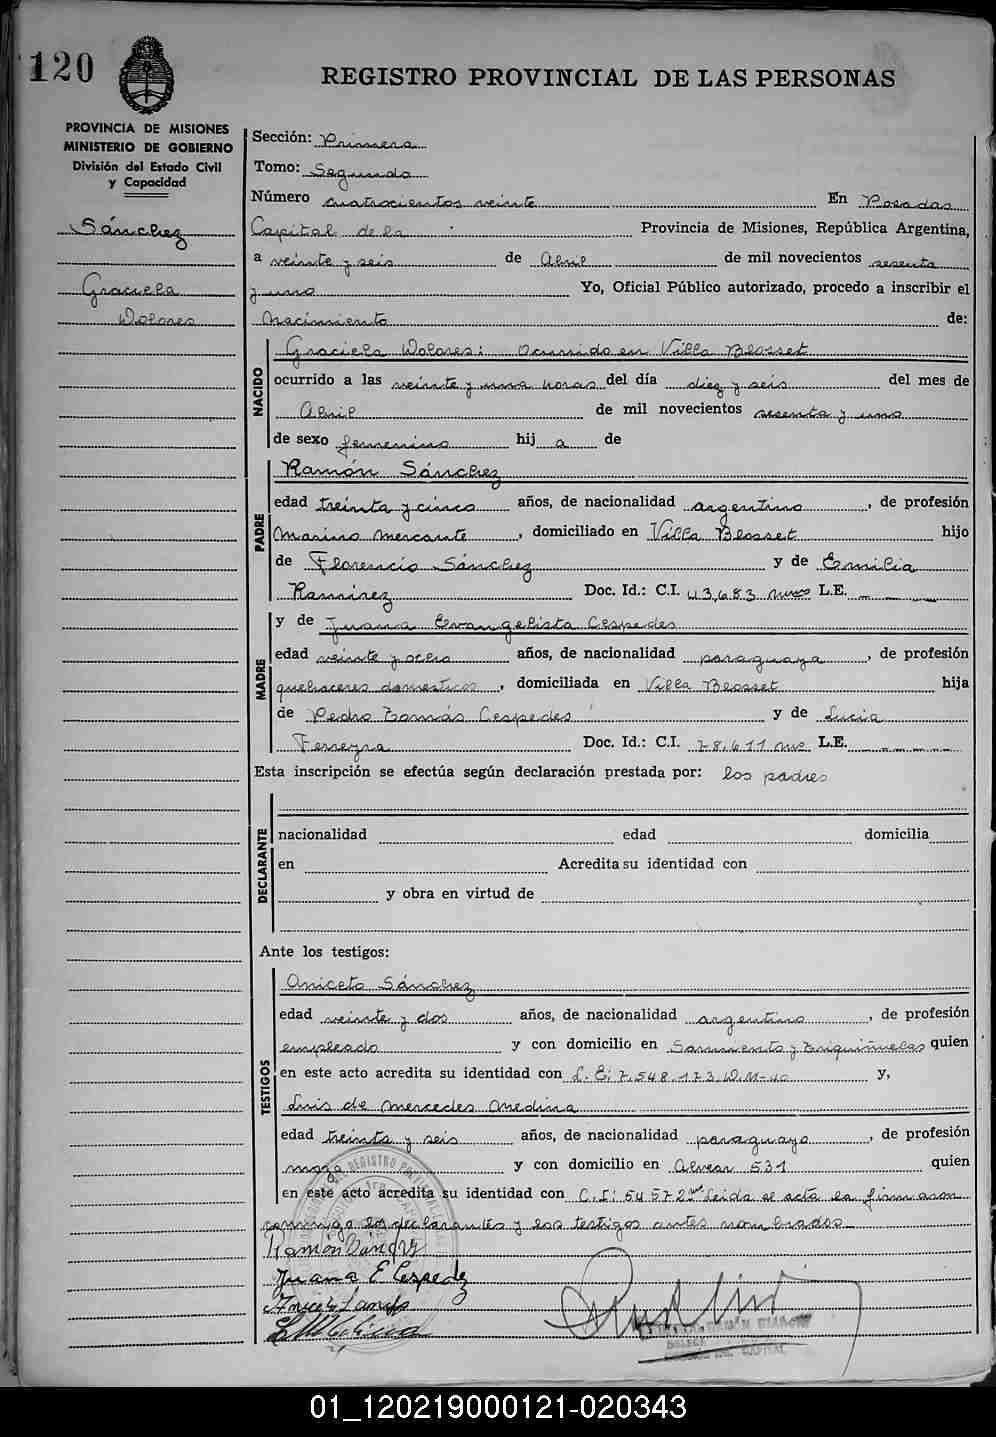 120
REGISTRO PROVINCIAL DE LAS PERSONAS
PROVINCIA DE MISIONES
MINISTERIO DE GOBIERNO
División del Estado Civil
y Capacidad
Sánchez
Graciela
Dolores
Sección: Primera
Tomo: Segundo
Número cuatrocientos veinte En Posadas
Capital de la Provincia de Misiones, República Argentina,
a veinte y seis de Abril de mil novecientos sesenta
y uno Yo, Oficial Público autorizado, procedo a inscribir el
Nacimiento de:
NACIDO
Graciela Dolores: Ocurrido en Villa Blosset
ocurrido a las veinte y una horas del día diez y seis del mes de
Abril de mil novecientos sesenta y uno
de sexo femenino hij a de
PADRE
Ramón Sánchez
edad treinta y cinco años, de nacionalidad argentino, de profesión
Marino mercante, domiciliado en Villa Blosset hijo
de Florencio Sánchez y de Emilia
Ramirez Doc. Id.: C.I. 43,683 Mnes L.E. — — —
MADRE
y de Juana Evangelista Cespedes
edad veinte y ocho años, de nacionalidad paraguaya, de profesión
quehaceres domesticos, domiciliada en Villa Blosset hija
de Pedro Tomás Cespedes y de Lucia
Ferreyra Doc. Id.: C.I. 78,611 Mnes L.E. — — — — —
Esta inscripción se efectúa según declaración prestada por: los padres
DECLARANTE
nacionalidad edad domicilia
en Acredita su identidad con
y obra en virtud de
Ante los testigos:
TESTIGOS
Aniceto Sánchez
edad veinte y dos años, de nacionalidad argentino, de profesión
empleado y con domicilio en Sarmiento y quien
en este acto acredita su identidad con L. E: 7.548.173. D.M-40 y,
Luis de Mercedes Medina
edad treinta y seis años, de nacionalidad paraguayo, de profesión
mozo y con domicilio en Alvear 531 quien
en este acto acredita su identidad con C.I: 54572 Leida el acta la firmaron
conmigo los declarantes y los testigos antes nombrados
Ramón Sánchez
Juana E Cespedez
01_120219000121-020343